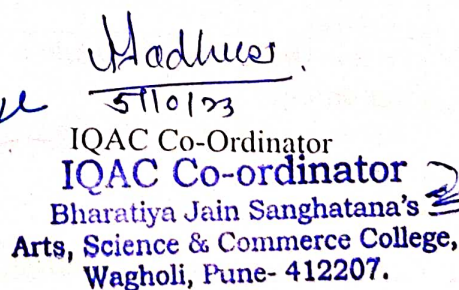 5/10/23
IQAC Co-Ordinator
IQAC Co-ordinator
Bharatiya Jain Sanghatana's
Arts, Science & Commerce College,
Wagholi, Pune- 412207.